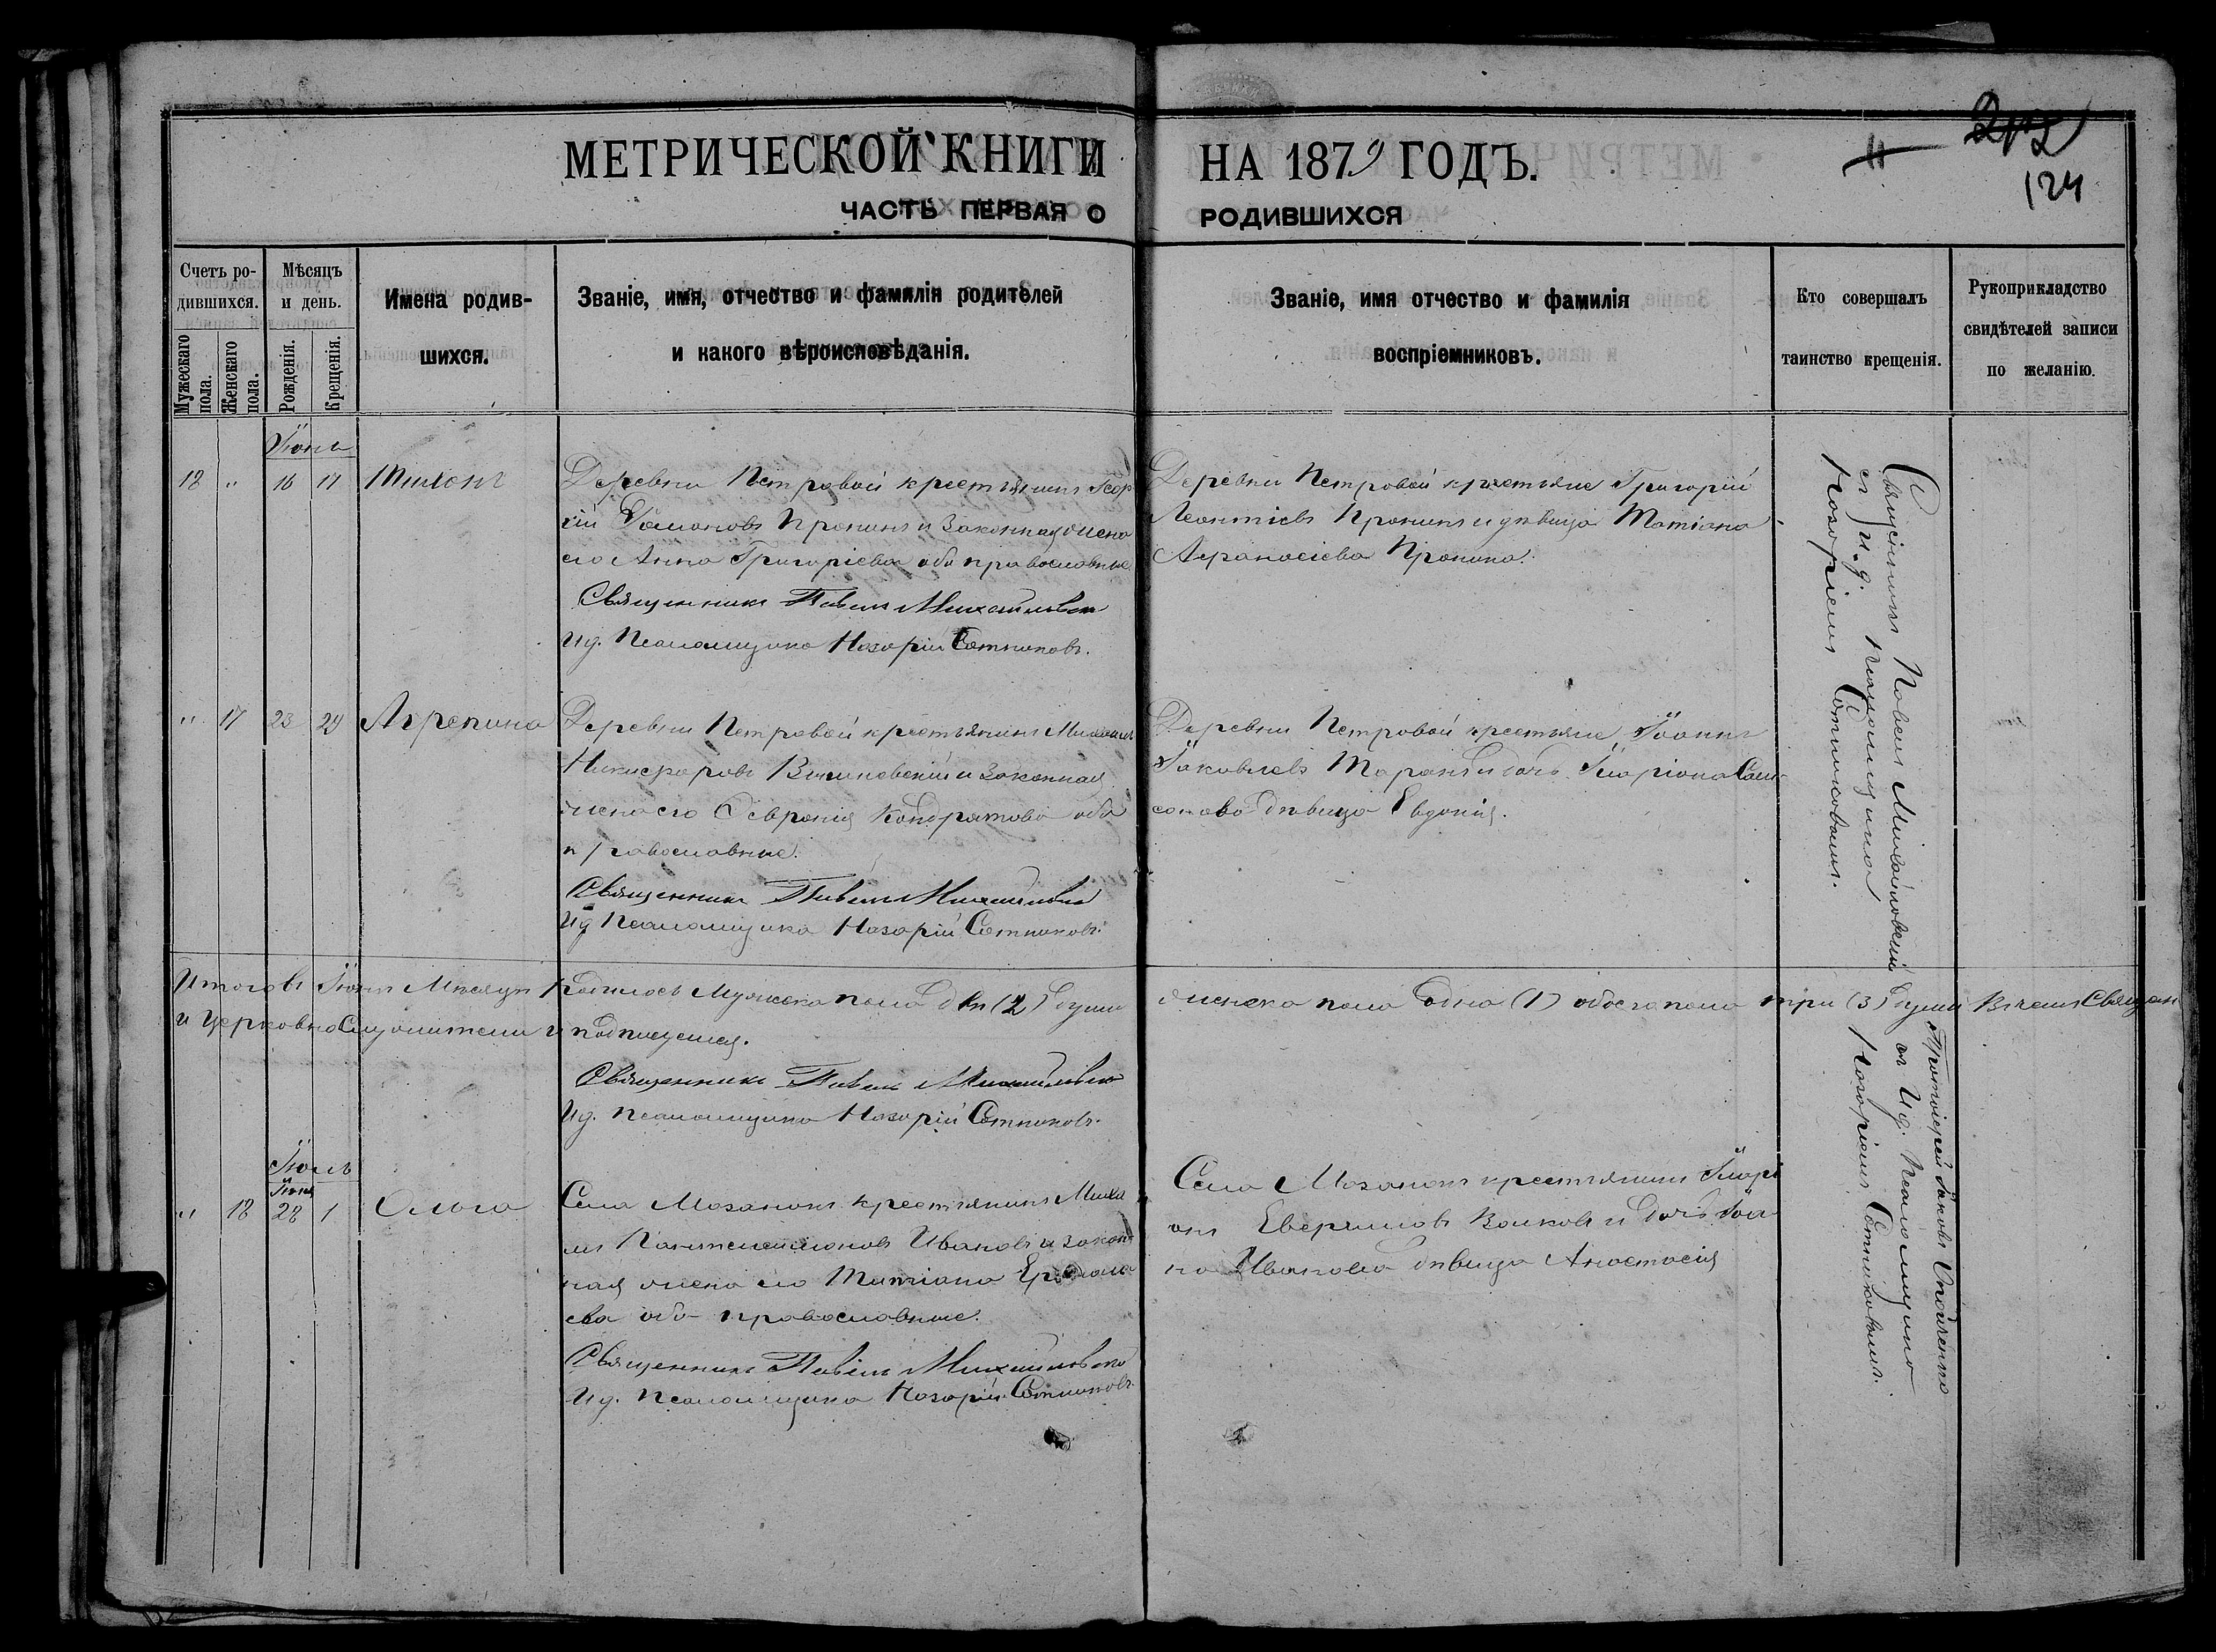 124
МЕТРИЧЕСКОЙ КНИГИ НА 1879 ГОДЪ.
ЧАСТЬ ПЕРВАЯ О РОДИВШИХСЯ
Счетъ ро-
дившихся.
Мужескаго пола.
Женскаго пола.
Мѣсяцъ
и день.
Рожденія.
Крещенія.
Имена родив-
шихся.
Званіе, имя, отчество и фамилія родителей
и какого вѣроисповѣданія.
Званіе, имя отчество и фамилія
воспріемниковъ.
Кто совершалъ
таинство крещенія.
Рукоприкладство
свидѣтелей записи
по желанію.
Іюнь
18 " 16 17 Тихонъ
Деревни Петровой крестьянинъ Геор
гій Романовъ Пронинъ и законная жена
его Анна Григоріева оба православные
Священникъ Павелъ Михайловскій
Ид. Псаломщика Назарій Сотниковъ.
Деревни Петровой крестьяне Григорій
Леонтіевъ Пронинъ и дѣвица Татіана
Афанасіева Пронина.
Священникъ Павелъ Михайловскій
съ и. д. псаломщика
Назаріемъ Сотниковымъ.
" 17 23 24 Агрепина
Деревни Петровой крестьянинъ Михаилъ
Никифоровъ и законная
жена его Февронія Кондратова оба
православные.
Священникъ Павелъ Михайловскій
Ид Псаломщика Назарій Сотниковъ.
Деревни Петровой крестьяне Іоаннъ
Іаковлевъ Таранъ и дочь Иларіона Сам-
сонова дѣвица Евдокія.
Итого въ Іюнѣ Мѣсяцѣ родилось Мужска пола двѣ (2) души женска пола одна (1) обоего пола три (3) души Въ чемъ Священ
и церковнослужители и подписуемся.
Священникъ Павелъ Михайловскій
Ид. Псаломщика Назарій Сотниковъ.
Іюль
Іюня
" 18 28 1 Ольга
Села Мазанокъ крестьянинъ Михаи
лъ Пантелеимоновъ Ивановъ и закон
ная жена его Татіана
ева оба православные.
Священникъ Павелъ Михайловскій
Ид. Псаломщика Назарій Сотниковъ.
Села Мазанокъ крестьянинъ Илари
онъ Волковъ и дочь Іоан
на Иванова дѣвица Анастасія
Протоіерей Іаковъ
съ Ид. Псаломщика
Назаріемъ Сотниковымъ.